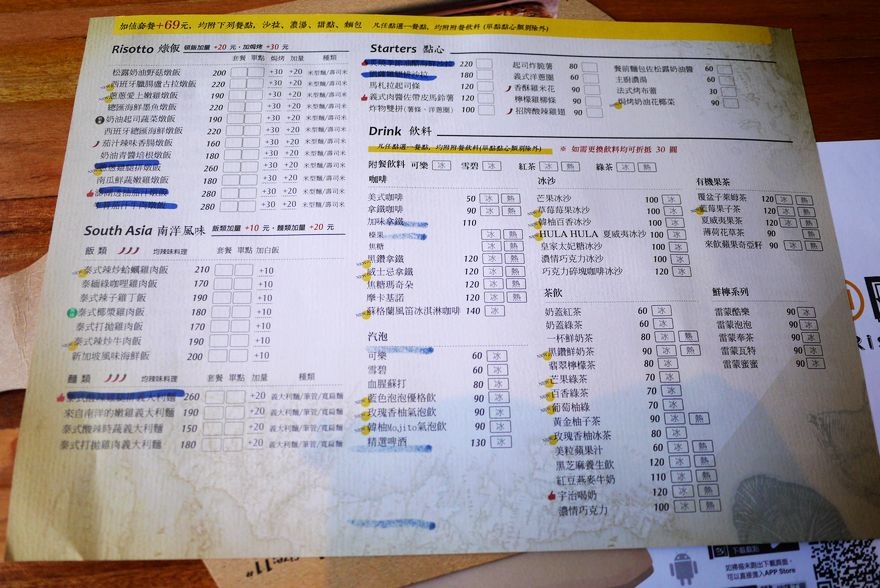 加值套餐+69元，均附下列餐點，沙拉、濃湯、甜點、麵包 凡任點選一餐點，均附附餐飲料(單點點心類別除外)
Risotto 燉飯 頓飯加量 +20 元，加焗烤 +30 元
套餐 單點 焗烤 加量 種類
松露奶油野菇燉飯 200 +30 +20 米型麵/壽司米
西班牙臘腸盧古拉燉飯 220 +30 +20 米型麵/壽司米
蔥蔥愛上嫩雞燉飯 190 +30 +20 米型麵/壽司米
總匯海鮮墨魚燉飯 220 +30 +20 米型麵/壽司米
奶油起司蔬菜燉飯 190 +30 +20 米型麵/壽司米
西班牙總匯海鮮燉飯 220 +30 +20 米型麵/壽司米
茄汁辣味香腸燉飯 160 +30 +20 米型麵/壽司米
奶油青醬培根燉飯 180 +30 +20 米型麵/壽司米
雞腿排燉飯 260 +30 +20 米型麵/壽司米
南瓜鮮蔬嫩雞燉飯 180 +30 +20 米型麵/壽司米
280 +30 +20 米型麵/壽司米
280 +30 +20 米型麵/壽司米
South Asia 南洋風味 飯類加量 +10 元，麵類加量 +20 元
飯 類 均辣味料理 套餐 單點 加白飯
泰式辣炒蛤蠣雞肉飯 210 +10
泰緬綠咖哩雞肉飯 170 +10
泰式辣子雞丁飯 190 +10
泰式椰漿雞肉飯 180 +10
泰式打拋雞肉飯 170 +10
泰式辣炒牛肉飯 190 +10
新加坡風味海鮮飯 200 +10
麵 類 均辣味料理 套餐 單點 加量 種類
義大利麵 260 +20 義大利麵/筆管/寬扁麵
來自南洋的嫩雞義大利麵 190 +20 義大利麵/筆管/寬扁麵
泰式酸辣時蔬義大利麵 150 +20 義大利麵/筆管/寬扁麵
泰式打拋雞肉義大利麵 180 +20 義大利麵/筆管/寬扁麵
Starters 點心
220
180
馬札拉起司條 120
義式肉醬佐帶皮馬鈴薯 120
炸物雙拼(薯條、洋蔥圈) 100
起司炸脆薯 80
義式洋蔥圈 60
香酥雞米花 90
檸檬雞柳條 90
招牌酸辣雞翅 90
餐前麵包佐松露奶油醬 60
主廚濃湯 60
法式烤布蕾 30
焗烤奶油花椰菜 90
Drink 飲料
凡任點選一餐點，均附附餐飲料(單點點心類別除外) ※ 如需更換飲料均可折抵 30 圓
附餐飲料 可樂 冰 雪碧 冰 紅茶 冰 熱 綠茶 冰 熱
咖啡
美式咖啡 50 冰 熱
拿鐵咖啡 90 冰 熱
加味拿鐵 110
榛果 冰 熱
焦糖 冰 熱
黑鑽拿鐵 120 冰 熱
威士忌拿鐵 120 冰 熱
焦糖瑪奇朵 120 冰 熱
摩卡基諾 120 冰 熱
蘇格蘭風笛冰淇淋咖啡 140 冰
汽泡
可樂 60 冰
雪碧 60 冰
血腥蘇打 80 冰
藍色泡泡優格飲 90 冰
玫瑰香柚氣泡飲 90 冰
韓柚Mojito氣泡飲 90 冰
精選啤酒 130 冰
冰沙
芒果冰沙 100 冰
草莓莓果冰沙 100 冰
韓柚百香冰沙 100 冰
HULA HULA 夏威夷冰沙 100 冰
皇家太妃糖冰沙 100 冰
濃情巧克力冰沙 120 冰
巧克力碎塊咖啡冰沙 120 冰
茶飲
奶蓋紅茶 60 冰
奶蓋綠茶 60 冰
一杯鮮奶茶 80 冰 熱
黑鑽鮮奶茶 90 冰 熱
翡翠檸檬茶 80 冰
芒果綠茶 70 冰
百香綠茶 70 冰
葡萄柚綠 70 冰
黃金柚子茶 90 冰 熱
玫瑰香柚冰茶 80 冰
美粒蘋果汁 60 冰 熱
黑芝麻養生飲 120 冰 熱
紅豆燕麥牛奶 110 冰 熱
宇治喝奶 120 冰 熱
濃情巧克力 100 冰 熱
有機果茶
覆盆子萊姆茶 120 冰 熱
藍莓果子茶 120 冰 熱
夏威夷果茶 120 冰 熱
薄荷花草茶 90 冰 熱
來飲蘋果奇亞籽 90 冰 熱
鮮檸系列
雷蒙酷樂 90 冰
雷蒙泡泡 90 冰
雷蒙奉茶 90 冰
雷蒙瓦特 90 冰
雷蒙蜜蜜 90 冰
下載點點
如掃描未跑出下載頁面，
可以直接進入APP Store